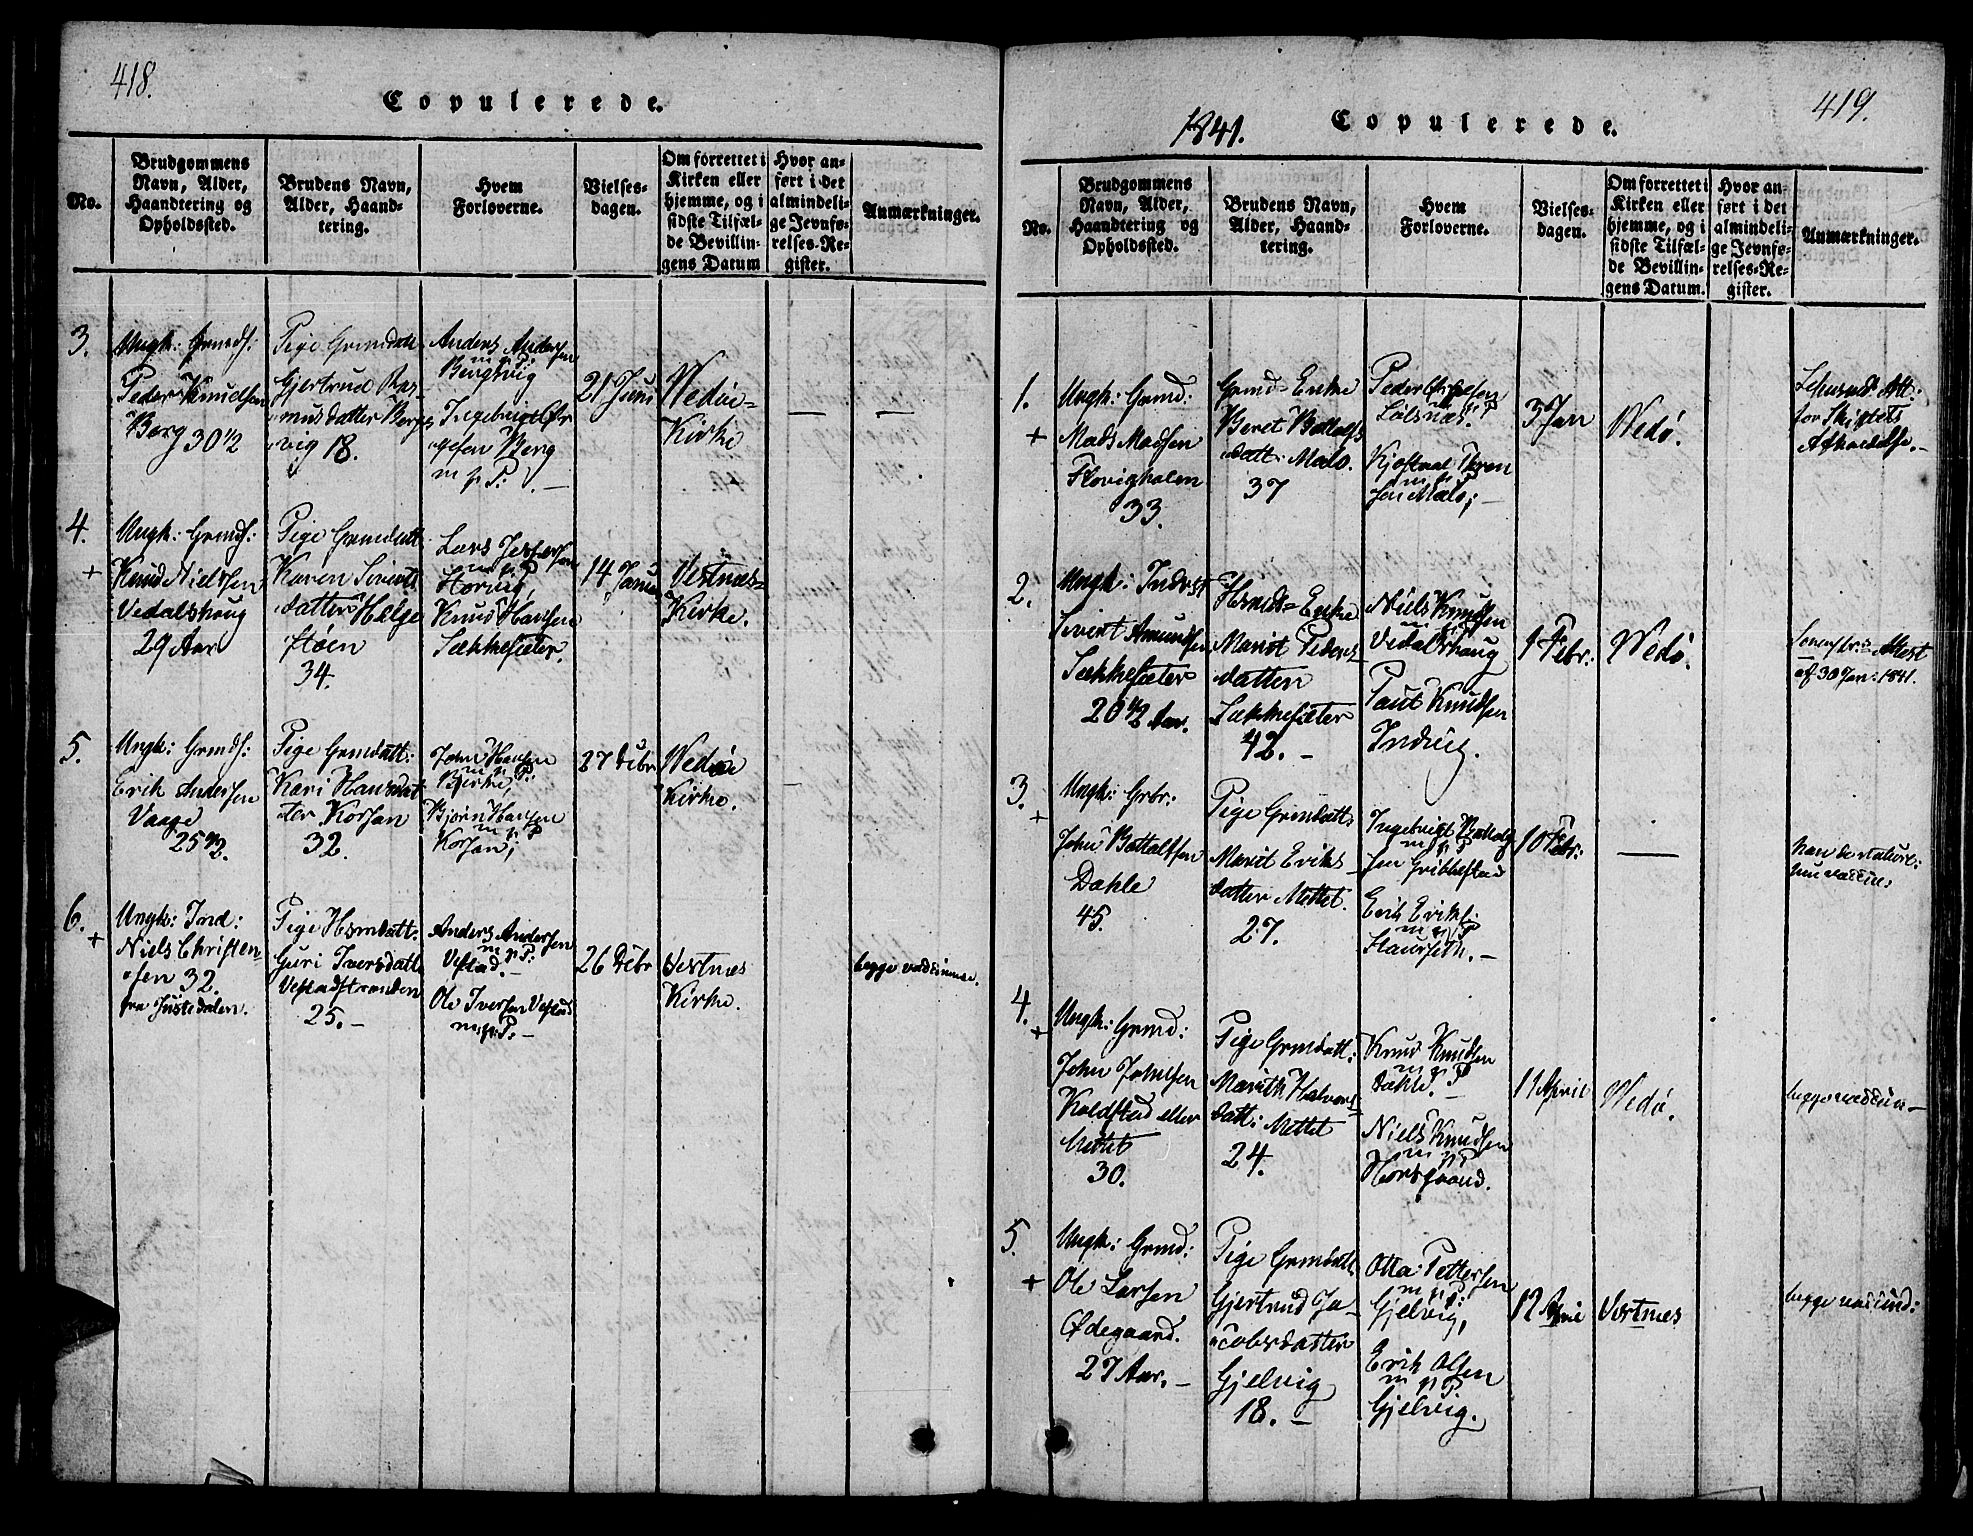 418.
Copulerede.
No.
Brudgommens
Navn, Alder,
Haandtering og
Opholdssted.
Brudens Navn,
Alder, Haand-
tering.
Hvem
Forloverne.
Vielses-
dagen.
Om forrettet i
Kirken eller
hjemme, og i
sidste Tilfæl-
de Bevillin-
gens Datum
Hvor an-
ført i det
almindeli-
ge Jevnfø-
relses-Re-
gister.
Anmærkninger.
3.
Ungk: Grmds:
Peder Knudsen
Berg 30 1/2
Pige Grmdatt
Gjertrud Ras-
musdatter Berg-
vig 18.
Anders Andersen
m p P.
Bergsvig
Ingebrigt
Berg
m p P.
21 Juni
Wedøe-
Kirke
—
—
4.
+
Ungk: Grmds:
Knud Nielsen
Vedalshaug
29 Aar
Pige Grmdatt
Karen Siverts
datter Helge
støen
34.
Lars Jespersen
m p P
Horvig,
Knud Hansen
Sækkesæter.
14
Vestnæs-
Kirke.
5.
Ungk: Grmds:
Erik Andersen
Vaage
25 1/2.
Pige Grmdatt:
Kari Hansdat
ter Korsan
32.
John Hansen
m p P.
Bjørn Hansen
m p P
Korsan;
27 Debr
Wedøe
Kirke.
—
6.
+
Ungk: Ind:
Niels Christen-
sen 32.
fra Justedalen.
Pige Hsmdatt.
Guri Iversdatt
Vestadstranden
25.—
Anders Andersen
m p P.
Vestad.—
Ole Iversen Vestad
m p P.—
26 Debr
Vestnes
Kirke.
begge vaccinere.
419.
1841.
Copulerede.
No.
Brudgommens
Navn, Alder,
Haandtering og
Opholdssted.
Brudens Navn,
Alder, Haand-
tering.
Hvem
Forloverne.
Vielses-
dagen.
Om forrettet i
Kirken eller
hjemme, og i
sidste Tilfæl-
de Bevillin-
gens Datum.
Hvor an-
ført i det
almindeli-
ge Jevnfø-
relses-Re-
gister.
Anmærkninger.
1.
+
Ungk: Grmd:
Mads Madsen
Flovigholen
33.
Grmd-Enke
Beret Bottolfs
datt: Malo.
37
Peder
m p P
Kjøstael
m p P
sen Malo; —
3 Jan
Wedø.
Att:
for Skiftets
Afholdelse.—
2.
Ungk: Inderst
Sivert Amundsen
Sækkesæter
20 1/2 Aar.
Hsmds-Enke
Marit Peders-
datter
Sækkesæter
42.—
Niels Knudsen
m p P
Vedalshaug
Paul Knudsen
Indvig.
1 Febr:
Wedø.
Attest
af 30 Jan: 1841.
3.
+
Ungk: Grbr:
John Bottolfsen
Dahle
45.
Pige Grmdatt:
Marit Eriks-
datter Mettet.
27.
Ingebrigt
m p P
sen Gribbestad
Erik Eriks:
m p P
Haurseth.—
10 Febr:
—
han
hun vaccin:
4.
+
Ungk: Grmd:
John Johnsen
Koldstad eller
Mettet
30.
Pige Grmdatt:
Marith Halvors-
datt: Mettet
24.
Knud Knudsen
m p P
Dahle.—
Niels Knudsen
m p P
Horsgaard.
11 April
Wedø.
begge vaccin:—
5.
+
Ungk: Grmd:
Ole Larsen
Ødegaard.
27 Aar.—
Pige Grmdatt
Gjertrud Ja-
cobsdatter
Gjelvig
18.—
Otta Pettersen
m p P.
Gjelvig,
Erik Olsen
m p P
Gjelvig.
12
Vestnes
begge vaccind: